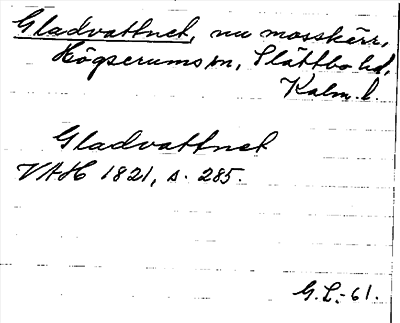 Gladvattnet, nu mosskärr,
Högserums sn, Slättbo hd,
Kalm. l.
Gladvattnet
VAH 1821, s. 285.
G.L.-61.